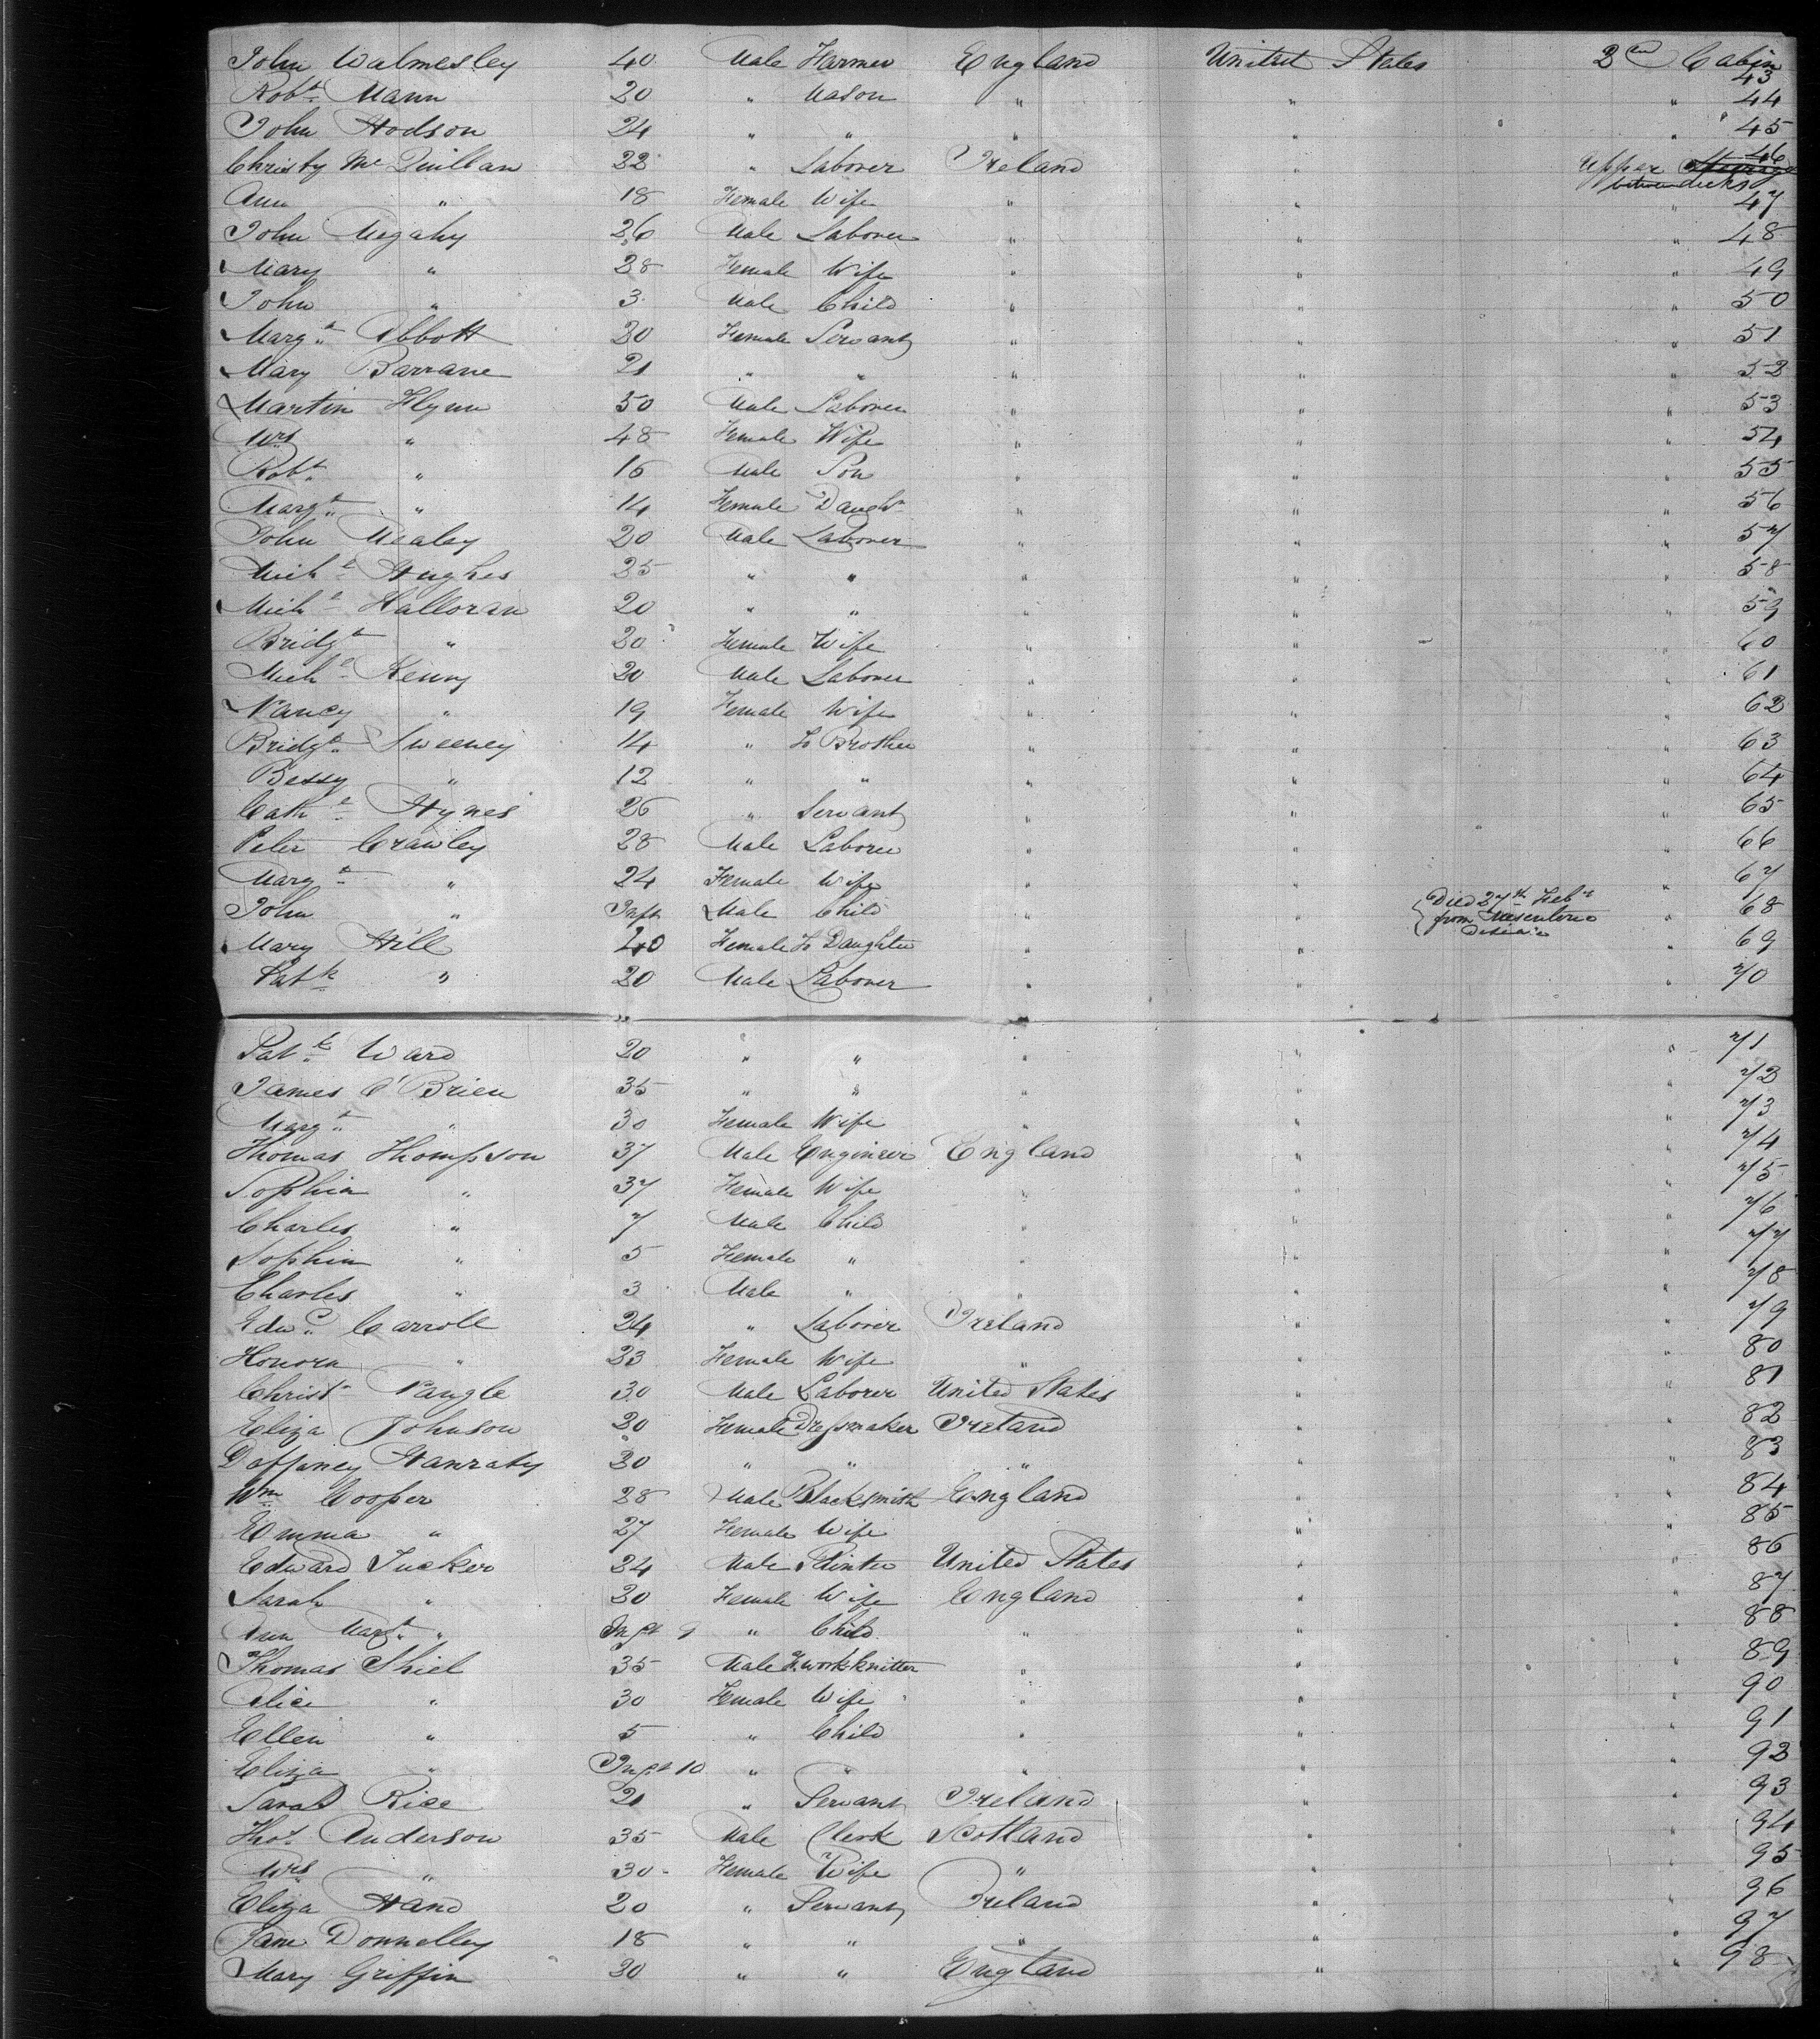 John Walmesley 40 Male Farmer England United States 2nd Cabin 43
Robt Mann 20 " Mason " " " 44
John Hodson 24 " " " " " 45
Christy McQuillan 22 " Laborer Ireland " Upper Steerage 46
between decks
Ann " 18 Female Wife " " " 47
John Megahy 26 Male Laborer " " " 48
Mary " 28 Female Wife " " " 49
John " 3 Male Child " " " 50
Margt Abbott 20 Female Servant " " " 51
Mary Barrane 21 " " " " " 52
Martin Flynn 50 Male Laborer " " " 53
Mrs " 48 Female Wife " " " 54
Robt " 16 Male Son " " " 55
Margt " 14 Female Daughr " " " 56
John Mealey 20 Male Laborer " " " 57
Michl Hughes 25 " " " " " 58
Michl Halloran 20 " " " " " 59
Bridgt " 20 Female Wife " " " 60
Michl Kenny 20 Male Laborer " " " 61
Nancy " 19 Female Wife " " " 62
Bridgt Sweeney 14 " To Brother " " " 63
Bessy " 12 " " " " " 64
Cathe Hynes 26 " Servant " " " 65
Peter Crawley 28 Male Laborer " " " 66
Margt " 24 Female Wife " " " 67
John " Inft Male Child " " Died 27th Feby from Mesenteric Disease " 68
Mary Hill 40 Female To Daughter " " " 69
Patk " 20 Male Laborer " " " 70
Patk Ward 20 " " " " " 71
James O'Brien 35 " " " " " 72
Margt " 30 Female Wife " " " 73
Thomas Thompson 37 Male Engineer England " " 74
Sophia " 37 Female Wife " " " 75
Charles " 7 Male Child " " " 76
Sophia " 5 Female " " " " 77
Charles " 3 Male " " " " 78
Edwd Carroll 24 " Laborer Ireland " " 79
Honora " 23 Female Wife " " " 80
Christr Nangle 30 Male Laborer United States " " 81
Eliza Johnson 20 Female Dressmaker Ireland " " 82
Daffaney Hanraty 20 " " " " " 83
Wm Cooper 28 Male Blacksmith England " " 84
Emma " 27 Female Wife " " 85
Edward Tucker 24 Male Printer United States " " 86
Sarah " 20 Female Wife England " " 87
Ann Margt " Inft 9 " Child " " " 88
Thomas Shiel 35 Male F.work knitter " " " 89
Alice " 30 Female Wife " " " 90
Ellen " 5 " Child " " " 91
Eliza " Inft 10 " " " " " 92
Sarah Rice 21 " Servant Ireland " " 93
Thos Anderson 35 Male Clerk Scotland " " 94
Mrs " 30 Female Wife " " " 95
Eliza Hand 20 " Servant Ireland " " 96
Jane Donnelley 18 " " " " " 97
Mary Griffin 30 " " England " " 98